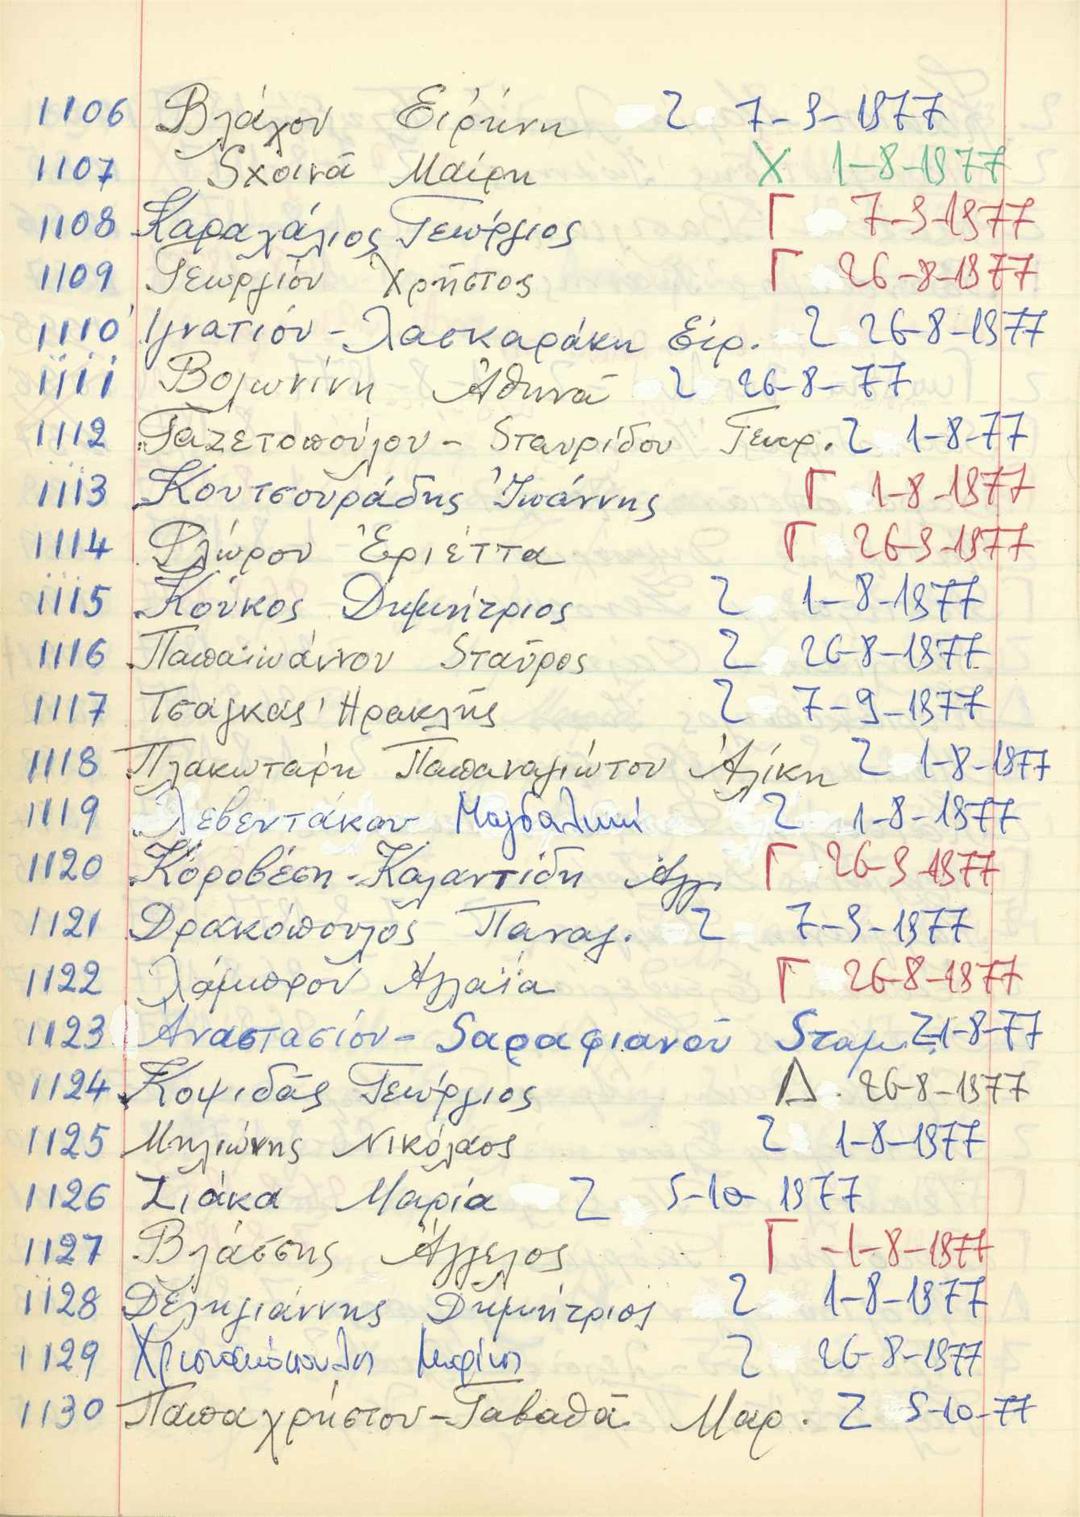 1106 Βλάχου Εἰρήνη Ζ 7-9-1977
1107 Σχοινᾶ Μαίρη Χ 1-8-1977
1108 Καραλάλιος Γεώργιος Γ 7-9-1977
1109 Γεωργίου Χρῆστος Γ 26-8-1977
1110 Ἰγνατίου-Λασκαράκη Εἰρ. Ζ 26-8-1977
1111 Βολωνίνη Ἀθηνᾶ Ζ 26-8-77
1112 Γαζετοπούλου-Σταυρίδου Γεωρ. Ζ 1-8-77
1113 Κουτσουράδης Ἰωάννης Γ 1-8-1977
1114 Φλώρου Ἑριέττα Γ 26-9-1977
1115 Κούκος Δημήτριος Ζ 1-8-1977
1116 Παπαϊωάννου Σταῦρος Ζ 26-8-1977
1117 Τσάγκας Ἡρακλῆς Ζ 7-9-1977
1118 Πλακωτάρη Παπαναγιώτου Ἀλίκη Ζ 1-8-1977
1119 Λεβεντάκου Μαγδαληνή Ζ 1-8-1977
1120 Κοροβέση-Καλαντίδη Ἀγγ. Γ 26-9-1977
1121 Δρακόπουλος Παναγ. Ζ 7-9-1977
1122 Λάμπρου Ἀγλαΐα Γ 26-8-1977
1123 Ἀναστασίου-Σαραφιανοῦ Σταμ. Ζ 1-8-77
1124 Κοψιδᾶς Γεώργιος Δ. 26-8-1977
1125 Μηλιώνης Νικόλαος Ζ 1-8-1977
1126 Ζιάκα Μαρία Ζ 5-10-1977
1127 Βλάσσης Ἄγγελος Γ -1-8-1977
1128 Δεληγιάννης Δημήτριος Ζ 1-8-1977
1129 Χριστακόπουλος Ζ 26-8-1977
1130 Παπαχρήστου-Γαβαθᾶ Μαρ. Ζ 5-10-77